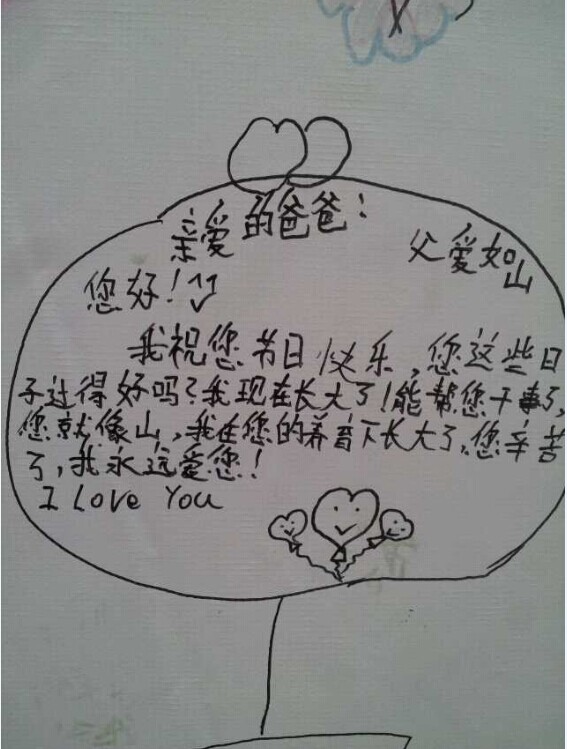 亲爱的爸爸：
父爱如山
您好！
我祝您节日快乐，您这些日
子过得好吗？我现在长大了！能帮您干事了，
您就像山，我在您的养育下长大了，您辛苦
了，我永远爱您！
I Love You